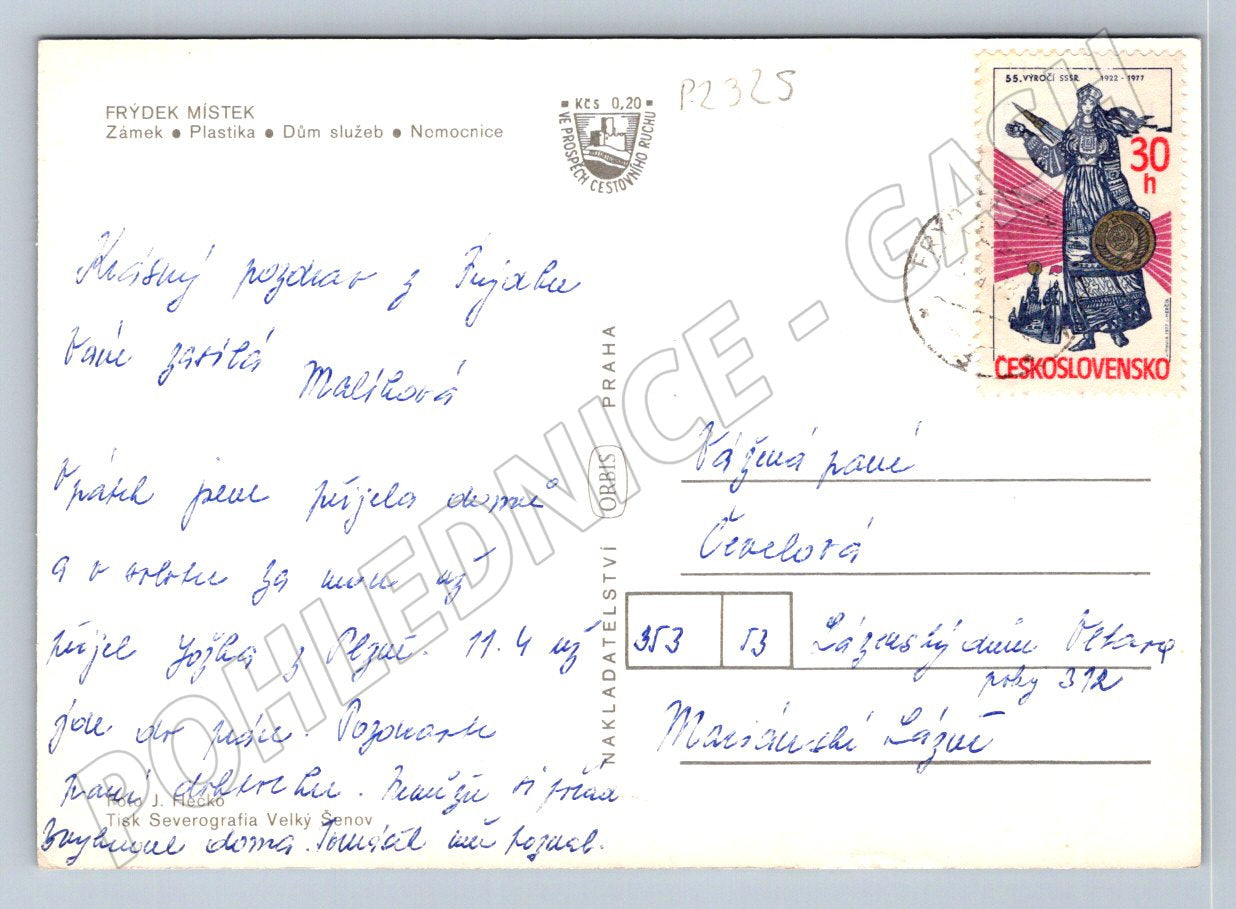 FRÝDEK MÍSTEK
Zámek • Plastika • Dům služeb • Nemocnice
Kčs 0,20
VE PROSPĚCH CESTOVNÍHO RUCHU
P2325
55. VÝROČÍ SSSR 1922 - 1977
30 h
ČESKOSLOVENSKO
FRÝD
Krásný pozdrav z Frýdku
Vám zasílá
Malíková
V pátek jsem přijela domů
a v sobotu za mnou už
přijel Jožka z Plzně. 11.4 už
jde do práce. Pozdravte
paní doktorku. Nemůžu si pořád
zvyknout doma. Tomášek mě poznal.
Foto J. Hečko
Tisk Severografia Velký Šenov
NAKLADATELSTVÍ ORBIS PRAHA
Vážená paní
Čevelová
353 53 Lázeňský dům Vltava
poky 312
Mariánské Lázně
POHLEDNICE - GASH